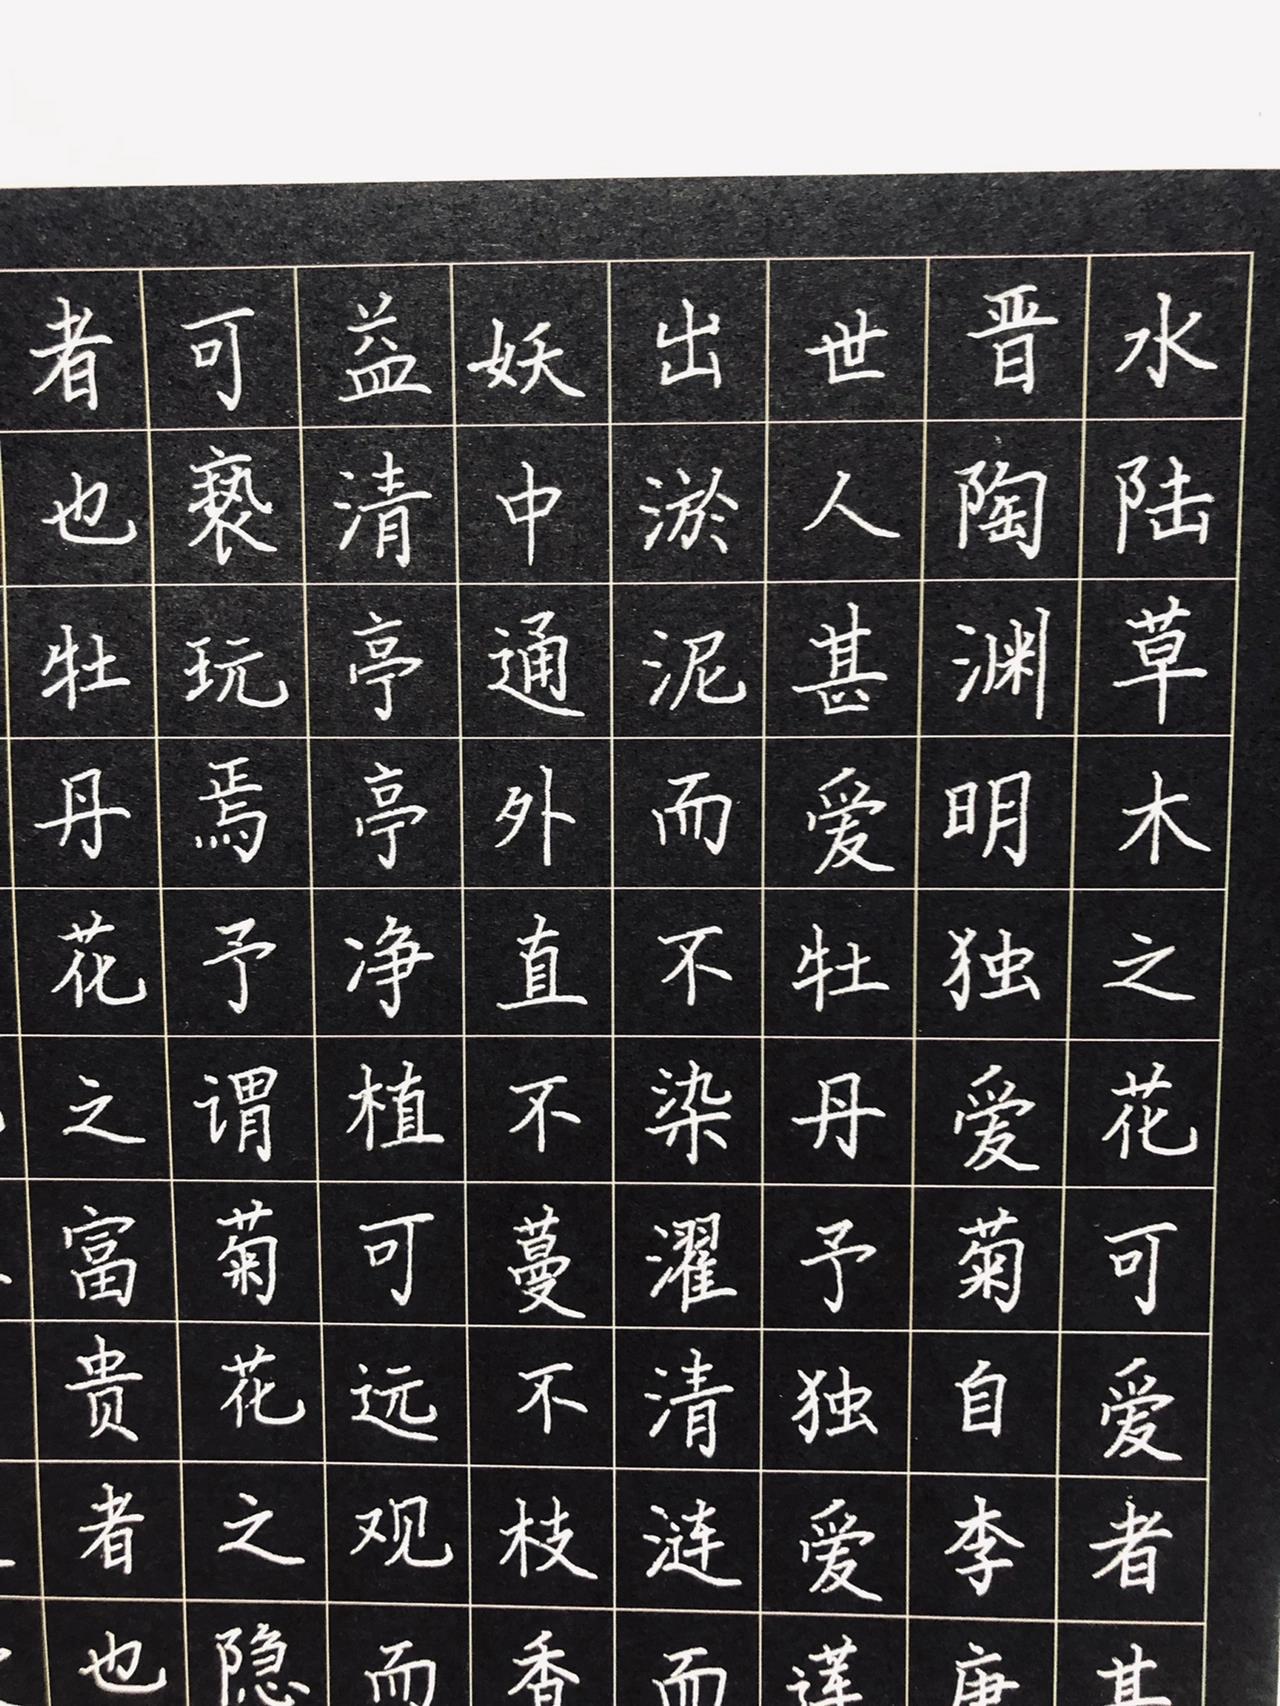 水陆草木之花可爱者甚
晋陶渊明独爱菊自李唐
世人甚爱牡丹予独爱莲
出淤泥而不染濯清涟而
妖中通外直不蔓不枝香
益清亭亭净植可远观而
可亵玩焉予谓菊花之隐
者也牡丹花之富贵者也